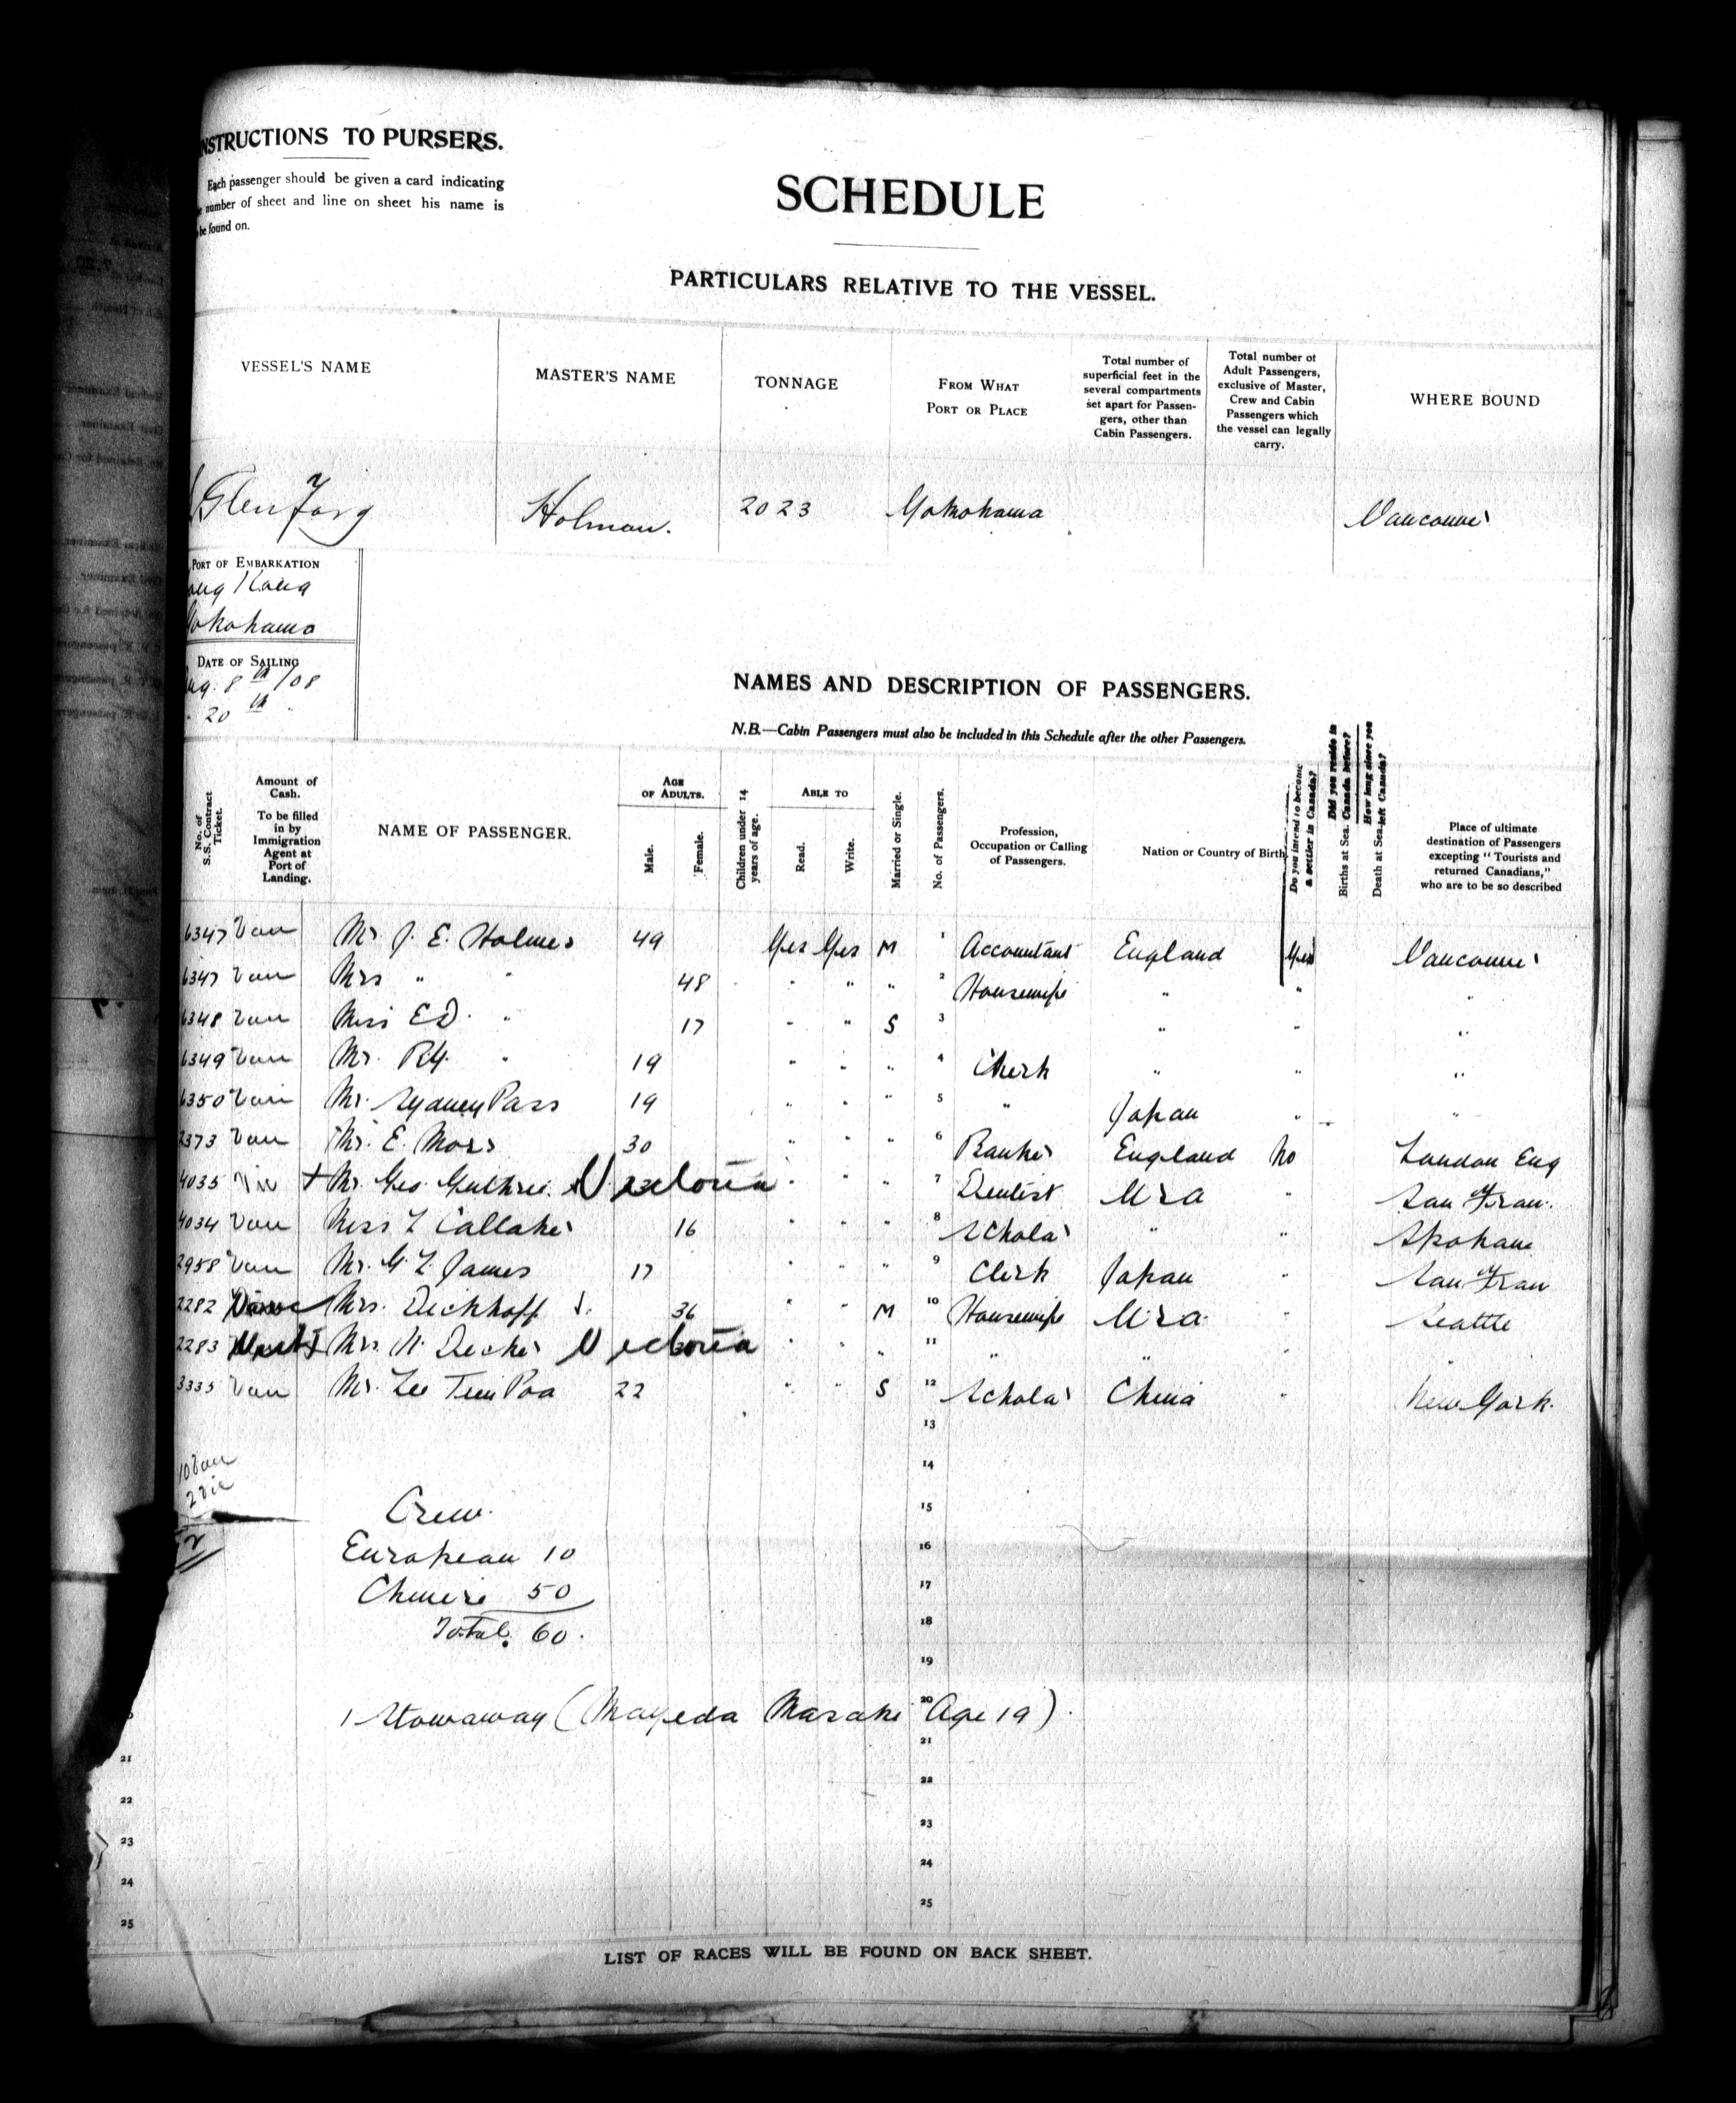 INSTRUCTIONS TO PURSERS.
Each passenger should be given a card indicating
number of sheet and line on sheet his name is
be found on.
SCHEDULE
PARTICULARS RELATIVE TO THE VESSEL.
VESSEL'S NAME
MASTER'S NAME
TONNAGE
FROM WHAT
PORT OR PLACE
Total number of
superficial feet in the
several compartments
set apart for Passen-
gers, other than
Cabin Passengers.
Total number of
Adult Passengers,
exclusive of Master,
Crew and Cabin
Passengers which
the vessel can legally
carry.
WHERE BOUND
Glenfarg Holman. 2023 Yokohama Vancouver
PORT OF EMBARKATION
Kong
Yokohama
DATE OF SAILING
Aug. 8th/08
20th "
NAMES AND DESCRIPTION OF PASSENGERS.
N.B.—Cabin Passengers must also be included in this Schedule after the other Passengers.
No. of
S.S. Contract
Ticket.
Amount of
Cash.
To be filled
in by
Immigration
Agent at
Port of
Landing.
NAME OF PASSENGER.
AGE
OF ADULTS.
Male.
Female.
Children under 14
years of age.
ABLE TO
Read.
Write.
Married or Single.
No. of Passengers.
Profession,
Occupation or Calling
of Passengers.
Nation or Country of Birth
Do you intend to become
a settler in Canada?
Did you reside in
Canada before?
Births at Sea.
How long since you
left Canada?
Death at Sea.
Place of ultimate
destination of Passengers
excepting "Tourists and
returned Canadians,"
who are to be so described
6347 Van Mr J. E. Holmes 49 Yes Yes M 1 Accountant England Yes Vancouver
6347 Van Mrs " " 48 " " " 2 Housewife " " "
6348 Van Miss E.D. " 17 " " S 3 " " "
6349 Van Mr. " 19 " " " 4 Clerk " " "
6350 Van Mr. Sydney Pass 19 " " " 5 " Japan " "
2373 Van Mr. E. Moss 30 " " " 6 Banker England No London Eng
4035 Vic + Mr. Geo. Guthrie Victoria " " " 7 Dentist USA " San Fran.
4034 Van Miss Z Callaher 16 " " " 8 Scholar " " Spokane
2958 Van Mr. G. Z. James 17 " " " 9 Clerk Japan " San Fran
2282 Mrs. Dickhoff 36 " " M 10 Housewife USA " Seattle
2283 Mrs. Decker Victoria " " " 11 " " "
3335 Van Mr. Lee Tuin Poa 22 " " S 12 Scholar China " New York.
13
14
10 Van
2 Vic
15
12
Crew.
European 10
16
Chinese 50
17
Total. 60.
18
19
20
1 Stowaway (Mayeda Masake Age 19).
21 21
22 22
23 23
24 24
25 25
LIST OF RACES WILL BE FOUND ON BACK SHEET.